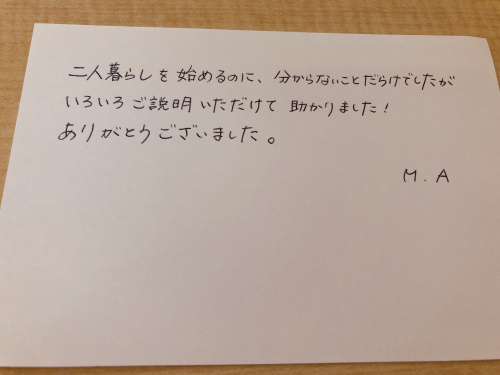 二人暮らしを始めるのに、分からないことだらけでしたが
いろいろご説明いただけて助かりました！
ありがとうございました。
M.A